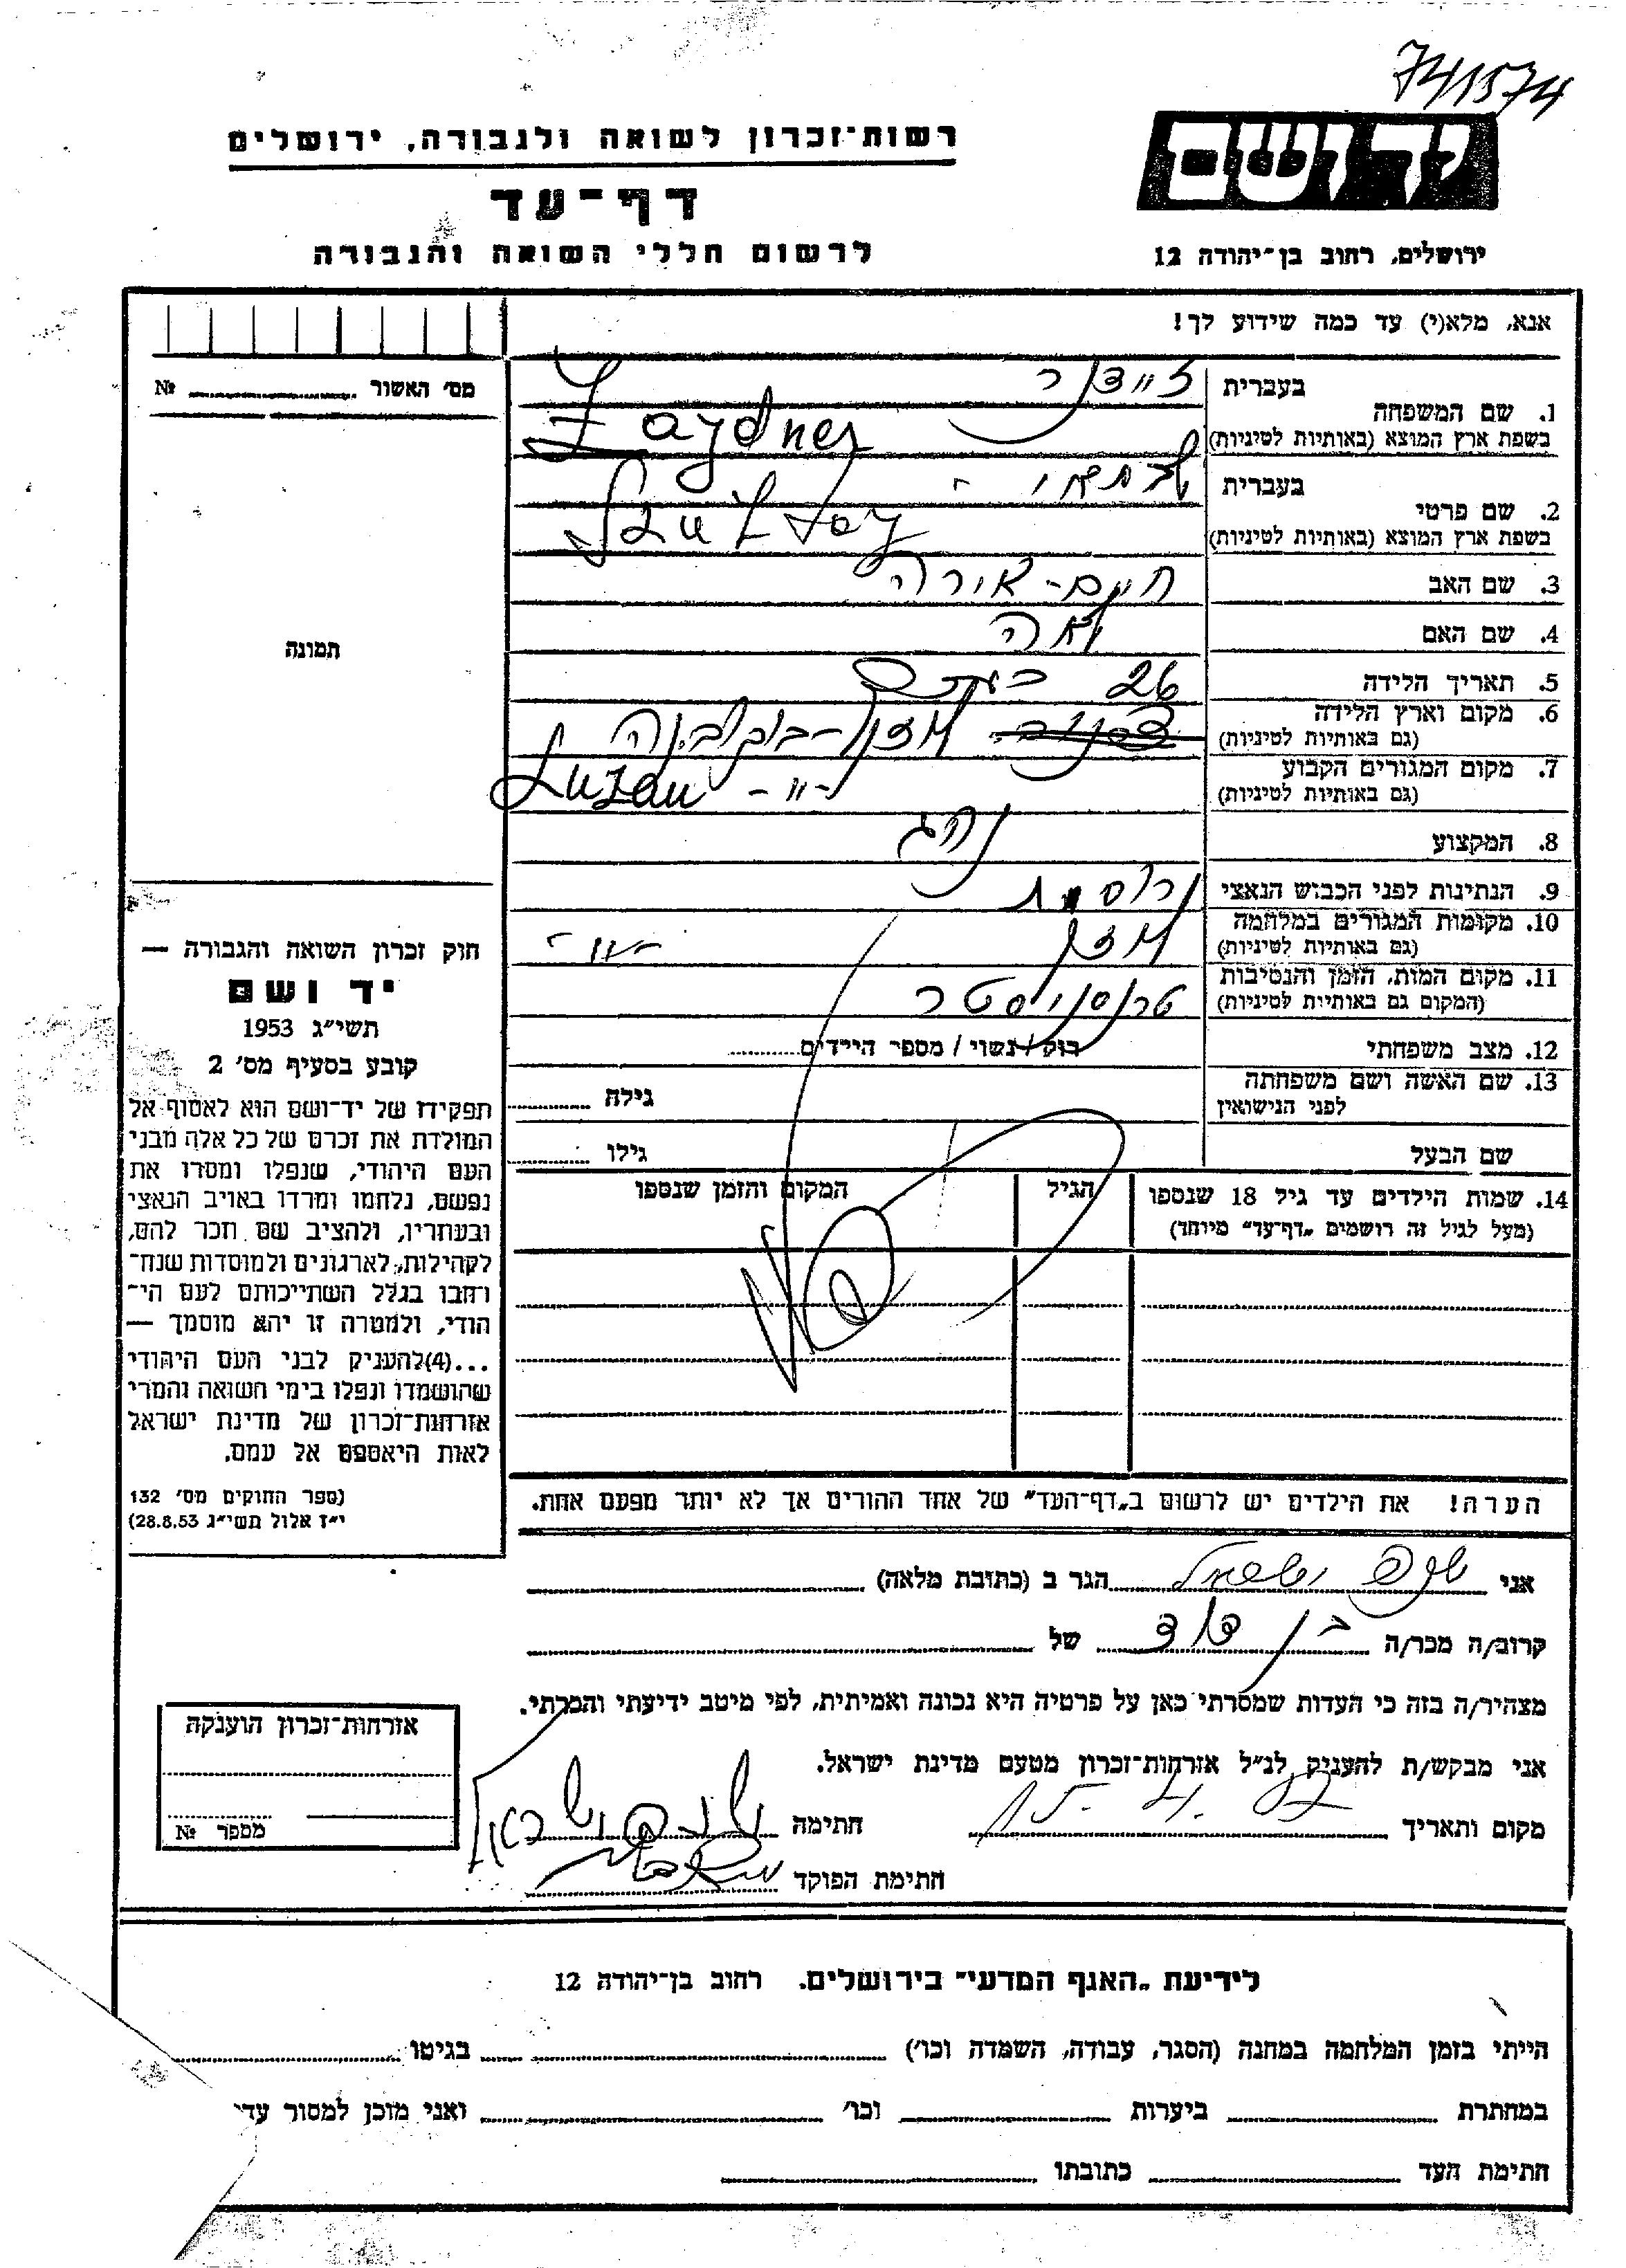 741574
רשות־זכרון לשואה ולגבורה, ירושלים
דף־עד
לרשום חללי השואה והגבורה
יד ושם
ירושלים, רחוב בן־יהודה 12
אנא, מלא(י) עד כמה שידוע לך!
מס׳ האשור № 
תמונה
חוק זכרון השואה והגבורה —
יד ושם
תשי״ג 1953
קובע בסעיף מס׳ 2
תפקידו של יד־ושם הוא לאסוף אל
המולדת את זכרם של כל אלה מבני
העם היהודי, שנפלו ומסרו את
נפשם, נלחמו ומרדו באויב הנאצי
ובעוזריו, ולהציב שם וזכר להם,
לקהילות, לארגונים ולמוסדות שנח־
רבו בגלל השתייכותם לעם הי־
הודי, ולמטרה זו יהא מוסמך —
...(4)להעניק לבני העם היהודי
שהושמדו ונפלו בימי השואה והמרי
אזרחות־זכרון של מדינת ישראל
לאות היאספם אל עמם.
(ספר החוקים מס׳ 132
י״ז אלול תשי״ג 28.8.53)
1. שם המשפחה
בעברית זיידנר
בשפת ארץ המוצא (באותיות לטיניות) Zaydner
2. שם פרטי
בעברית
בשפת ארץ המוצא (באותיות לטיניות)
3. שם האב חיים-אורה
4. שם האם לאה
5. תאריך הלידה 26
6. מקום וארץ הלידה
(גם באותיות לטיניות) לוזן-בוקובינה
7. מקום המגורים הקבוע
(גם באותיות לטיניות) -״- Luzan
8. המקצוע נהג
9. הנתינות לפני הכבוש הנאצי
10. מקומות המגורים במלחמה
(גם באותיות לטיניות) לוזן -״-
11. מקום המות, הזמן והנסיבות
(המקום גם באותיות לטיניות) טרנסניסטר
12. מצב משפחתי רוק / נשוי / מספר הילדים
13. שם האשה ושם משפחתה
לפני הנישואין גילה
שם הבעל גילו
14. שמות הילדים עד גיל 18 שנספו הגיל המקום והזמן שנספו
(מעל לגיל זה רושמים „דף־עד״ מיוחד)
הערה! את הילדים יש לרשום ב„דף־העד״ של אחד ההורים אך לא יותר מפעם אחת.
אני הגר ב (כתובת מלאה)
קרוב/ה מכר/ה בן דוד של
מצהיר/ה בזה כי העדות שמסרתי כאן על פרטיה היא נכונה ואמיתית, לפי מיטב ידיעתי והכרתי.
אני מבקש/ת להעניק לנ״ל אזרחות־זכרון מטעם מדינת ישראל.
מקום ותאריך חתימה
חתימת הפוקד
אזרחות־זכרון הוענקה
מספר №
לידיעת „האגף המדעי״ בירושלים. רחוב בן־יהודה 12
הייתי בזמן המלחמה במחנה (הסגר, עבודה, השמדה וכו׳) בגיטו
במחתרת ביערות וכו׳ ואני מוכן למסור עדי
חתימת העד כתובתו